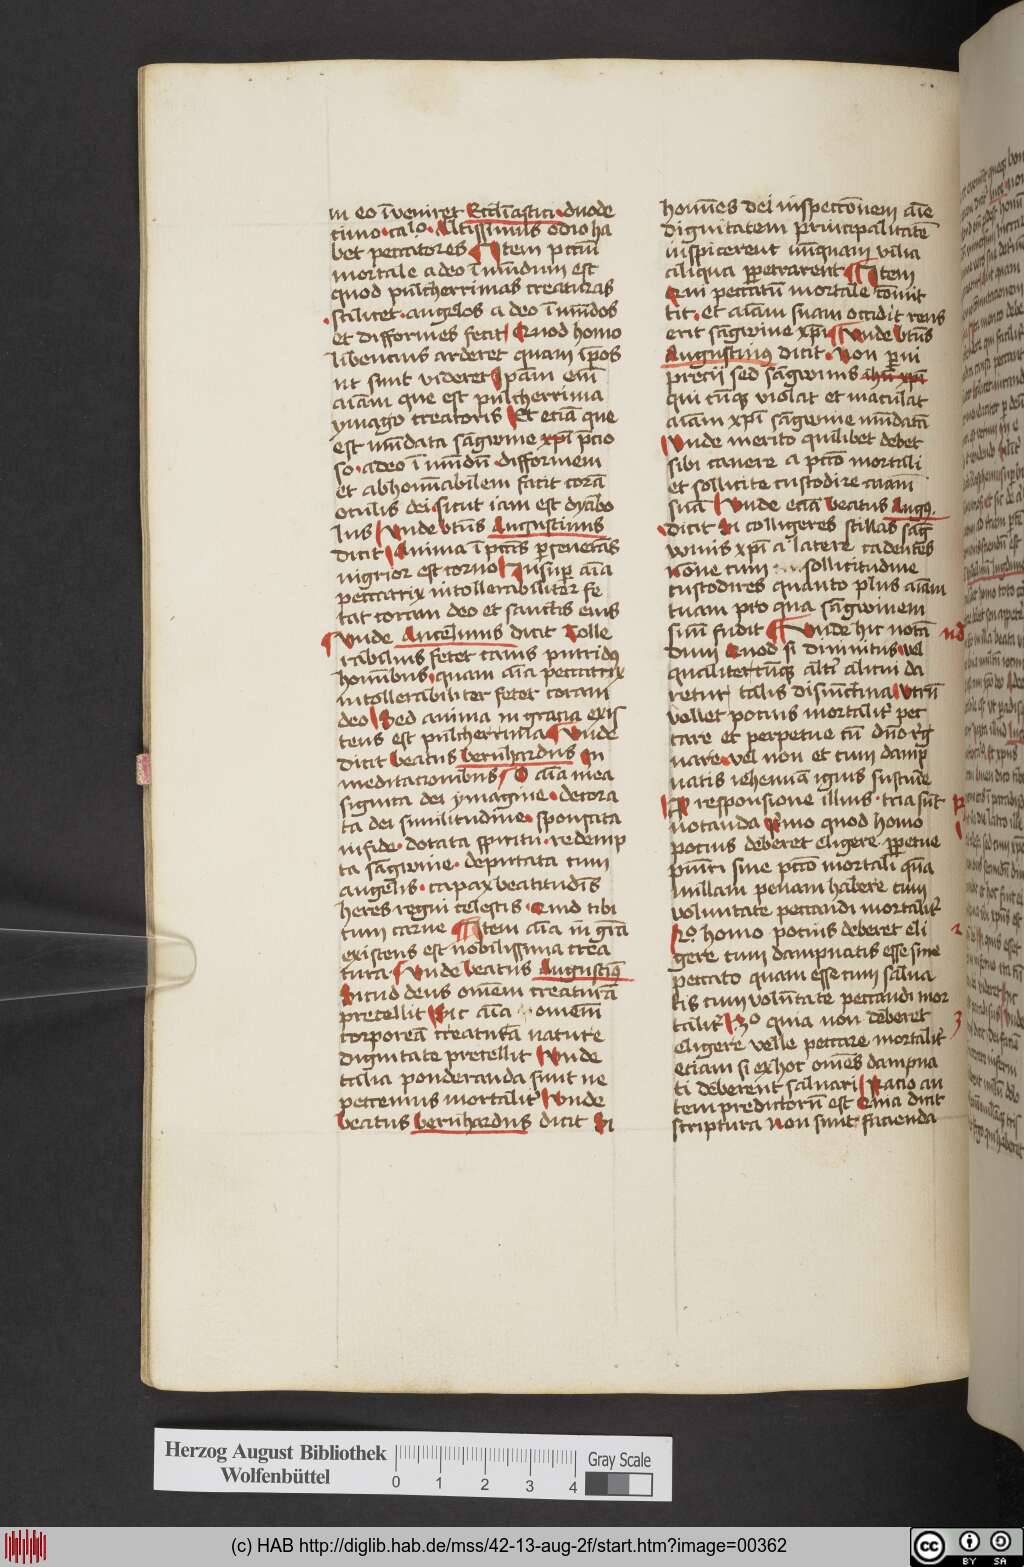 in eo īveniret Ecclīastici duode
cimo ca.lo. Altissimus odio ha
bet peccatores Item pctm̄
mortale adeo īmūdum est
quod pulcherrimas creaturas
scilicet angelos adeo īmūdos
et difformes fecit Quod homo
libencius arderet quam ip̄os
ut sunt videret Ipam eni̅
aīam que est pulcherrima
ymago creatoris Et eciā que
est mūdata sāgwine xp̄i p̄cio
so adeo īmūdū difformem
et abhominabilem facit corā
oculis dei sicut iam est dyabo
lus Unde btūs Augustinus
dicit Anima ī pctīs perseuerās
nigrior est coruo Insup aīa
peccatrix intollerabiliter fe
tat coram deo et sanctis eius
Unde Ancelmus dicit Tolle
rabilius fetet canis putridus
hominibus quam aīa peccatrix
intollerabiliter fetet coram
deo Sed anima in gracia exis
tens est pulcherrima Unde
dicit beatus bernhardus In
meditacionibus O aīa mea
signita dei ymagine decora
ta dei similitudine sponsata
in fide dotata spiritu redemp
ta sāgwine deputata cum
angelis capax beatitudīs
heres regni celestis Quid tibi
cum carne Item aīa in grā
existens est nobilissima crea
tura Unde beatus Augustiꝰ
Sicud deus omnem creaturā
precellit Sic aīa omnem
corpoream creaturā nature
dignitate precellit Unde
talia ponderanda sunt ne
peccemus mortalit̄ Unde
beatus bernhardus dicit Si
homines dei inspectionem aīe
dignitatem principalitatē
inspicerent nunquam vilia
aliqua perpetrarent Item
Qui peccatū mortale cōmit
tit et aīam suam occidit reus
erit sāgwine xp̄i Unde btūs
Augustinus dicit Non parui
precii sed sāgwinis ihū xp̄i
qui cūqꝫ violat et maculat
aīam xp̄i sāgwine mūdatā
Unde merito quilibet debet
sibi cauere a pctō mortali
et sollicite custodire aīam
suā Unde eciā beatus Augꝰ
dicit Si colligeres stillas sāg
winis xp̄i a latere cadentes
none cum sollicitudine
custodires quanto plus aīam
tuam pro qua sāgwinem
suū fudit Unde hic notā
dum Quod si diuinitus vel
qualitercūqꝫ alt̄i alicui da
retur talis disiūctiua Utrū
vellet pocius mortalit̄ pec
care et perpetue cū dn̄o r̄g
nare vel non et cum damp
natis iehennā ignis sustinē
In responsione illius tria sūt
notanda Primo quod homo
pocius deberet eligere perpetue
puniri sine pctō mortali quā
nullam penam habere cum
voluntate peccandi mortalit̄
2o homo pocius deberet eli
gere cum dampnatis esse sine
peccato quam esse cum salua
tis cum voluntate peccandi mor
talit̄ 3o quia non deberet
eligere velle peccare mortalit̄
etiam si ex hoc omnes dampna
ti deberent saluari Racio au
tem predictorū est Quia dicit
scriptura non sunt facienda
nō
2
3
Herzog August Bibliothek
Wolfenbüttel
0 1 2 3 4
Gray Scale
(c) HAB http://diglib.hab.de/mss/42-13-aug-2f/start.htm?image=00362
cc BY SA